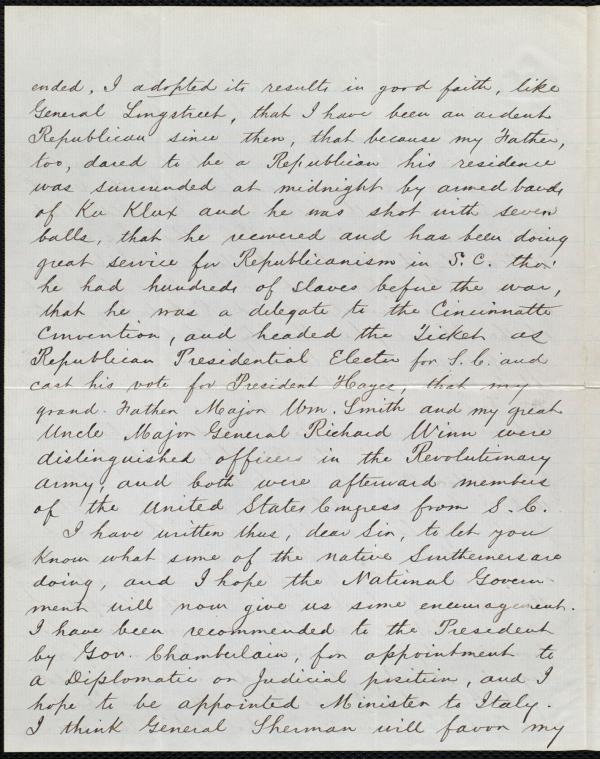 ended, I adopted its results in good faith, like
General Longstreet, that I have been an ardent
Republican since then, that because my Father,
too, dared to be a Republican his residence
was surrounded at midnight by armed bands
of Ku Klux and he was shot with seven
balls, that he recovered and has been doing
great service for Republicanism in S. C. tho'
he had hundreds of slaves before the war,
that he was a delegate to the Cincinnatti
Convention, and headed the Ticket as
Republican Presidential Elector for S. C. and
cast his vote for President Hayes, that my
grand-Father Major Wm. Smith and my great
Uncle Major General Richard Winn were
distinguished officers in the Revolutionary
army, and both were afterward members
of the United States Congress from S. C.
I have written thus, dear Sir, to let you
know what some of the native Southerners are
doing, and I hope the National Govern-
ment will now give us some encouragement.
I have been recommended to the President
by Gov. Chamberlain, for appointment to
a Diplomatic or Judicial position, and I
hope to be appointed Minister to Italy.
I think General Sherman will favor my